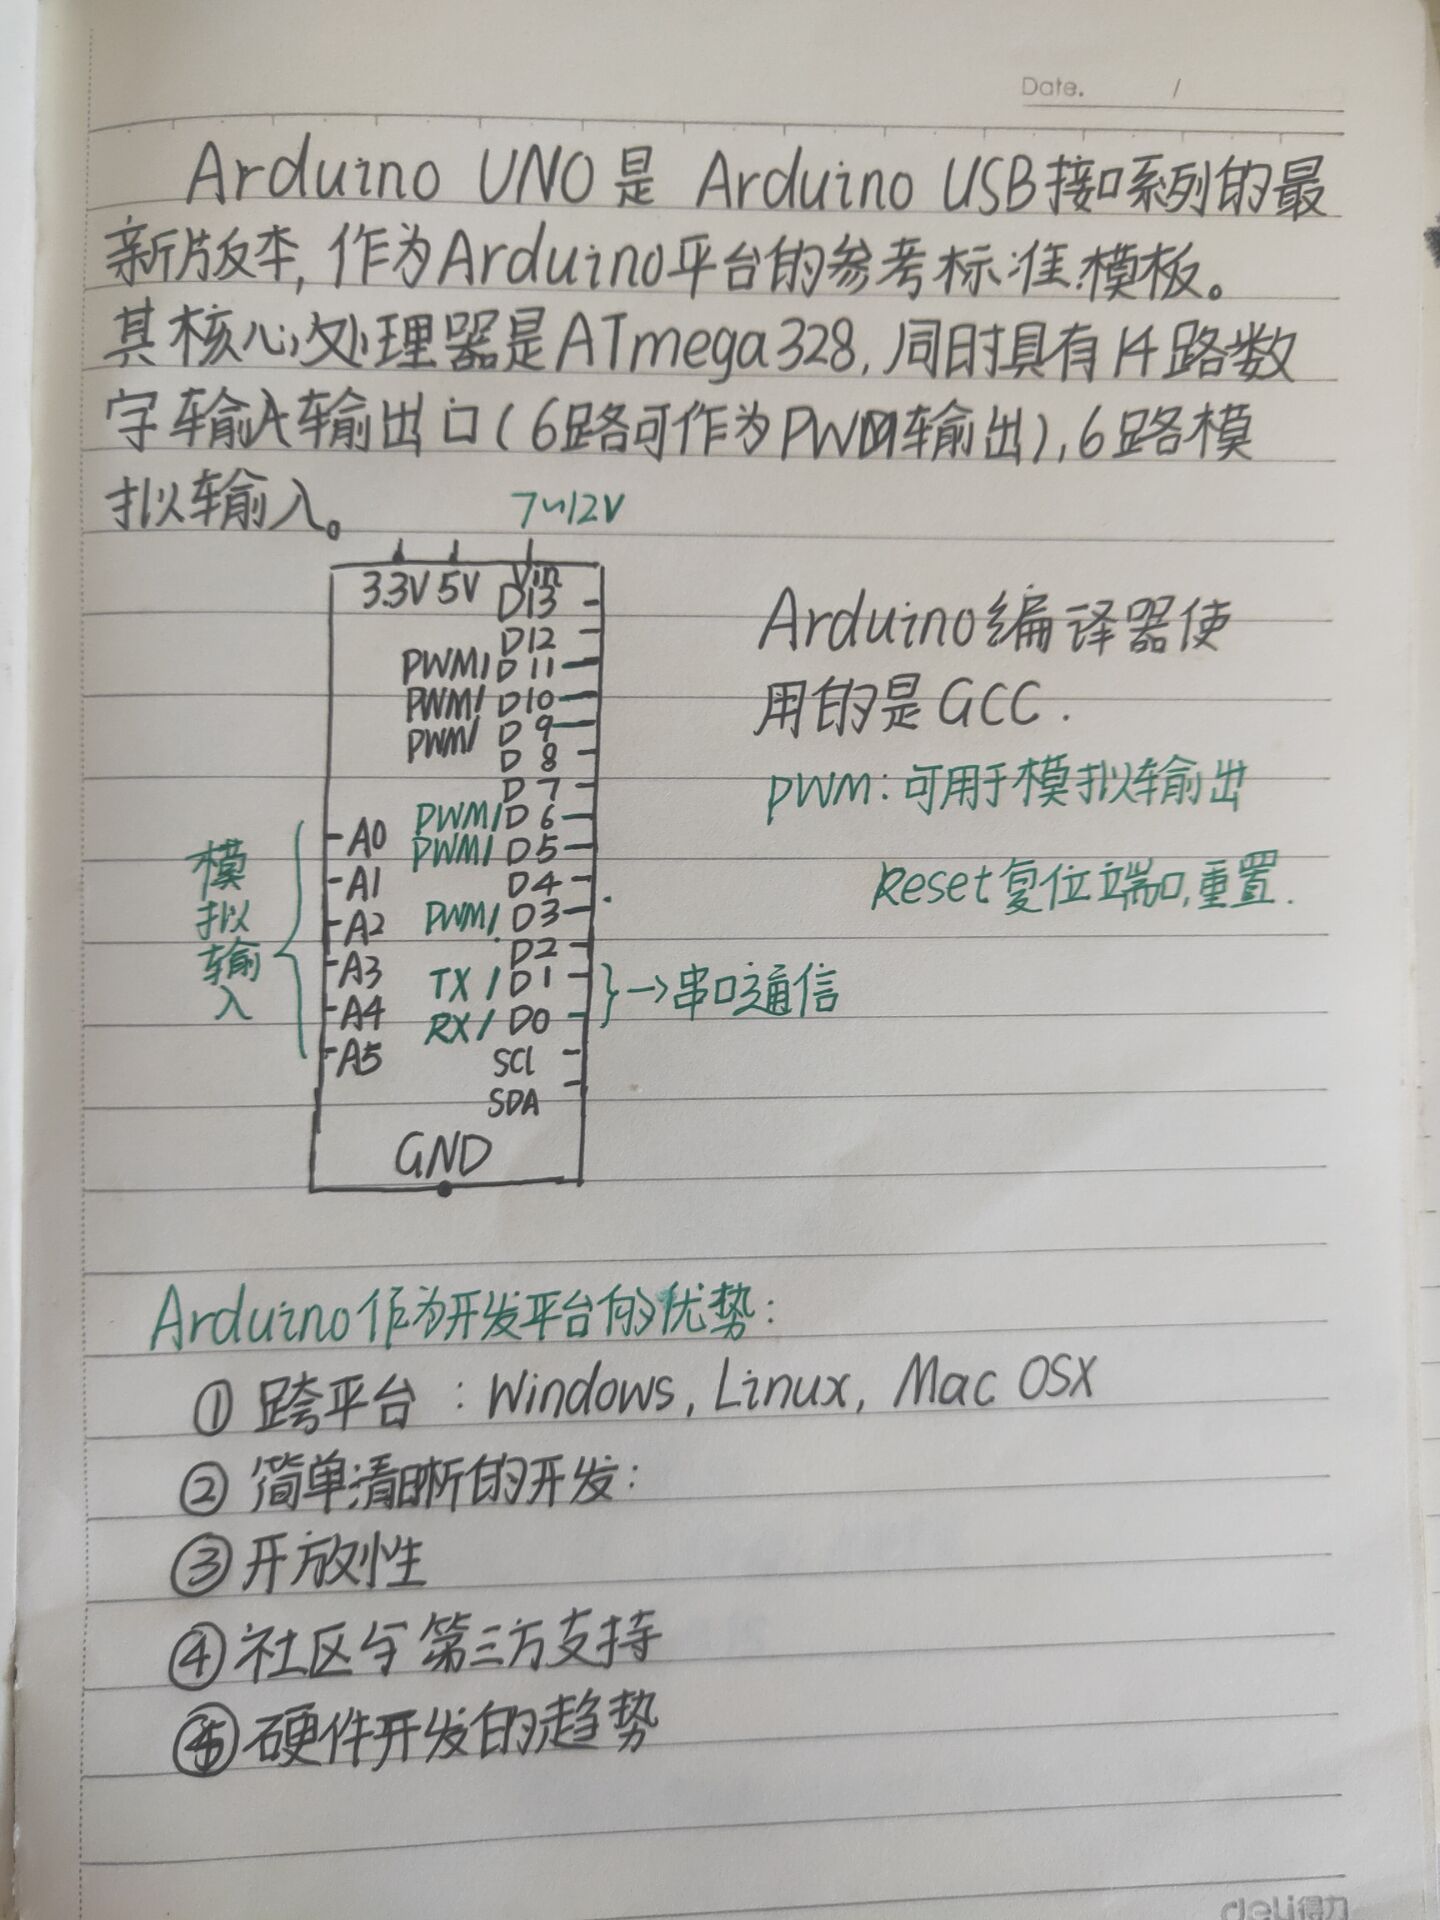 Date. /
Arduino UNO是 Arduino USB接口系列的最
新版本,作为Arduino平台的参考标准模板。
其核心处理器是ATmega328,同时具有14路数
字输入输出口(6路可作为PWM输出),6路模
拟输入。
7~12V
3.3V 5V Vin
D13
D12
PWM/D11
PWM/D10
PWM/D9
D8
D7
PWM/D6
PWM/D5
D4
PWM/D3
D2
TX/D1
RX/D0
SCl
SDA
A0
A1
A2
A3
A4
A5
模拟输入
GND
→串口通信
Arduino编译器使
用的是GCC.
PWM:可用于模拟输出
Reset复位端口,重置.
Arduino作为开发平台的优势:
① 跨平台:Windows, Linux, Mac OSX
② 简单清晰的开发:
③ 开放性
④ 社区与第三方支持
⑤ 硬件开发的趋势
deli得力